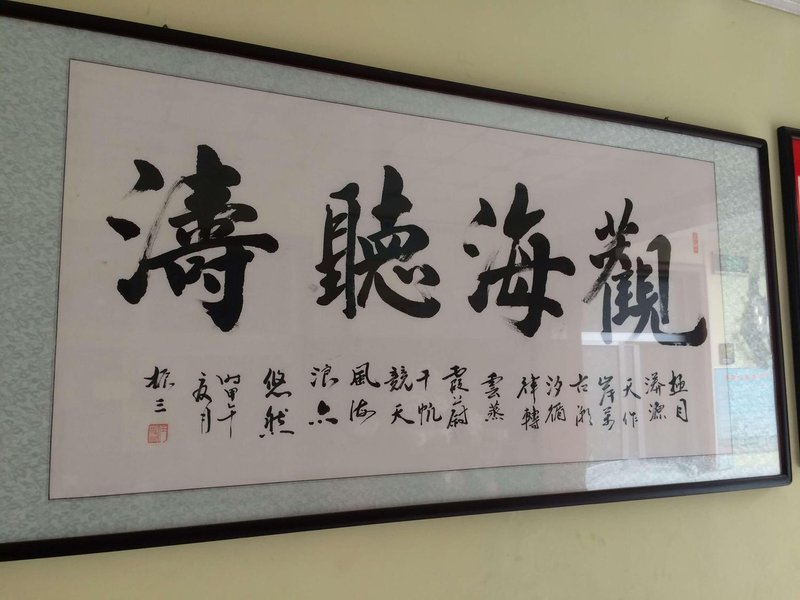 觀海聽濤
極目
天作
岸萬
古潮
汐循
律轉
雲蒸
霞蔚
千帆
競天
風海
浪亦
悠然
時甲午
夏月
振三